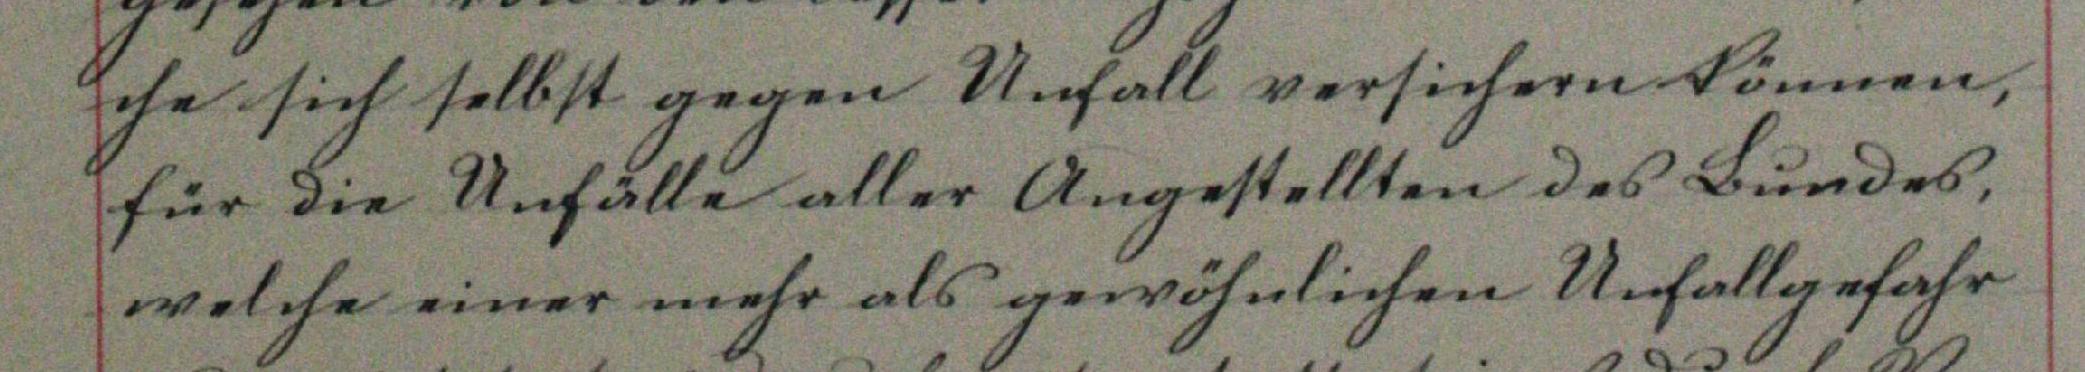 che sich selbst gegen Unfall versichern können,
für die Unfälle aller Angestellten des Bundes,
welche einer mehr als gewöhnlichen Unfallgefahr